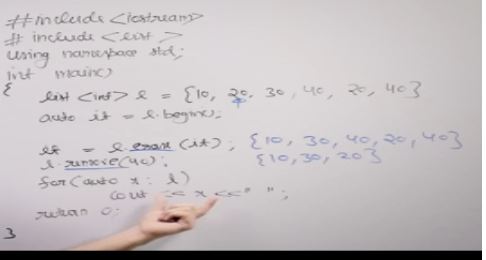 ##include <iostream>
# include <list>
using namespace std;
int main()
{
list <int> l = {10, 20, 30, 40, 20, 40}
auto it = l.begin();
it = l.erase(it); {10, 30, 40, 20, 40}
l.remove(40); {10, 30, 20}
for(auto x: l)
cout << x <<" ";
return 0;
}